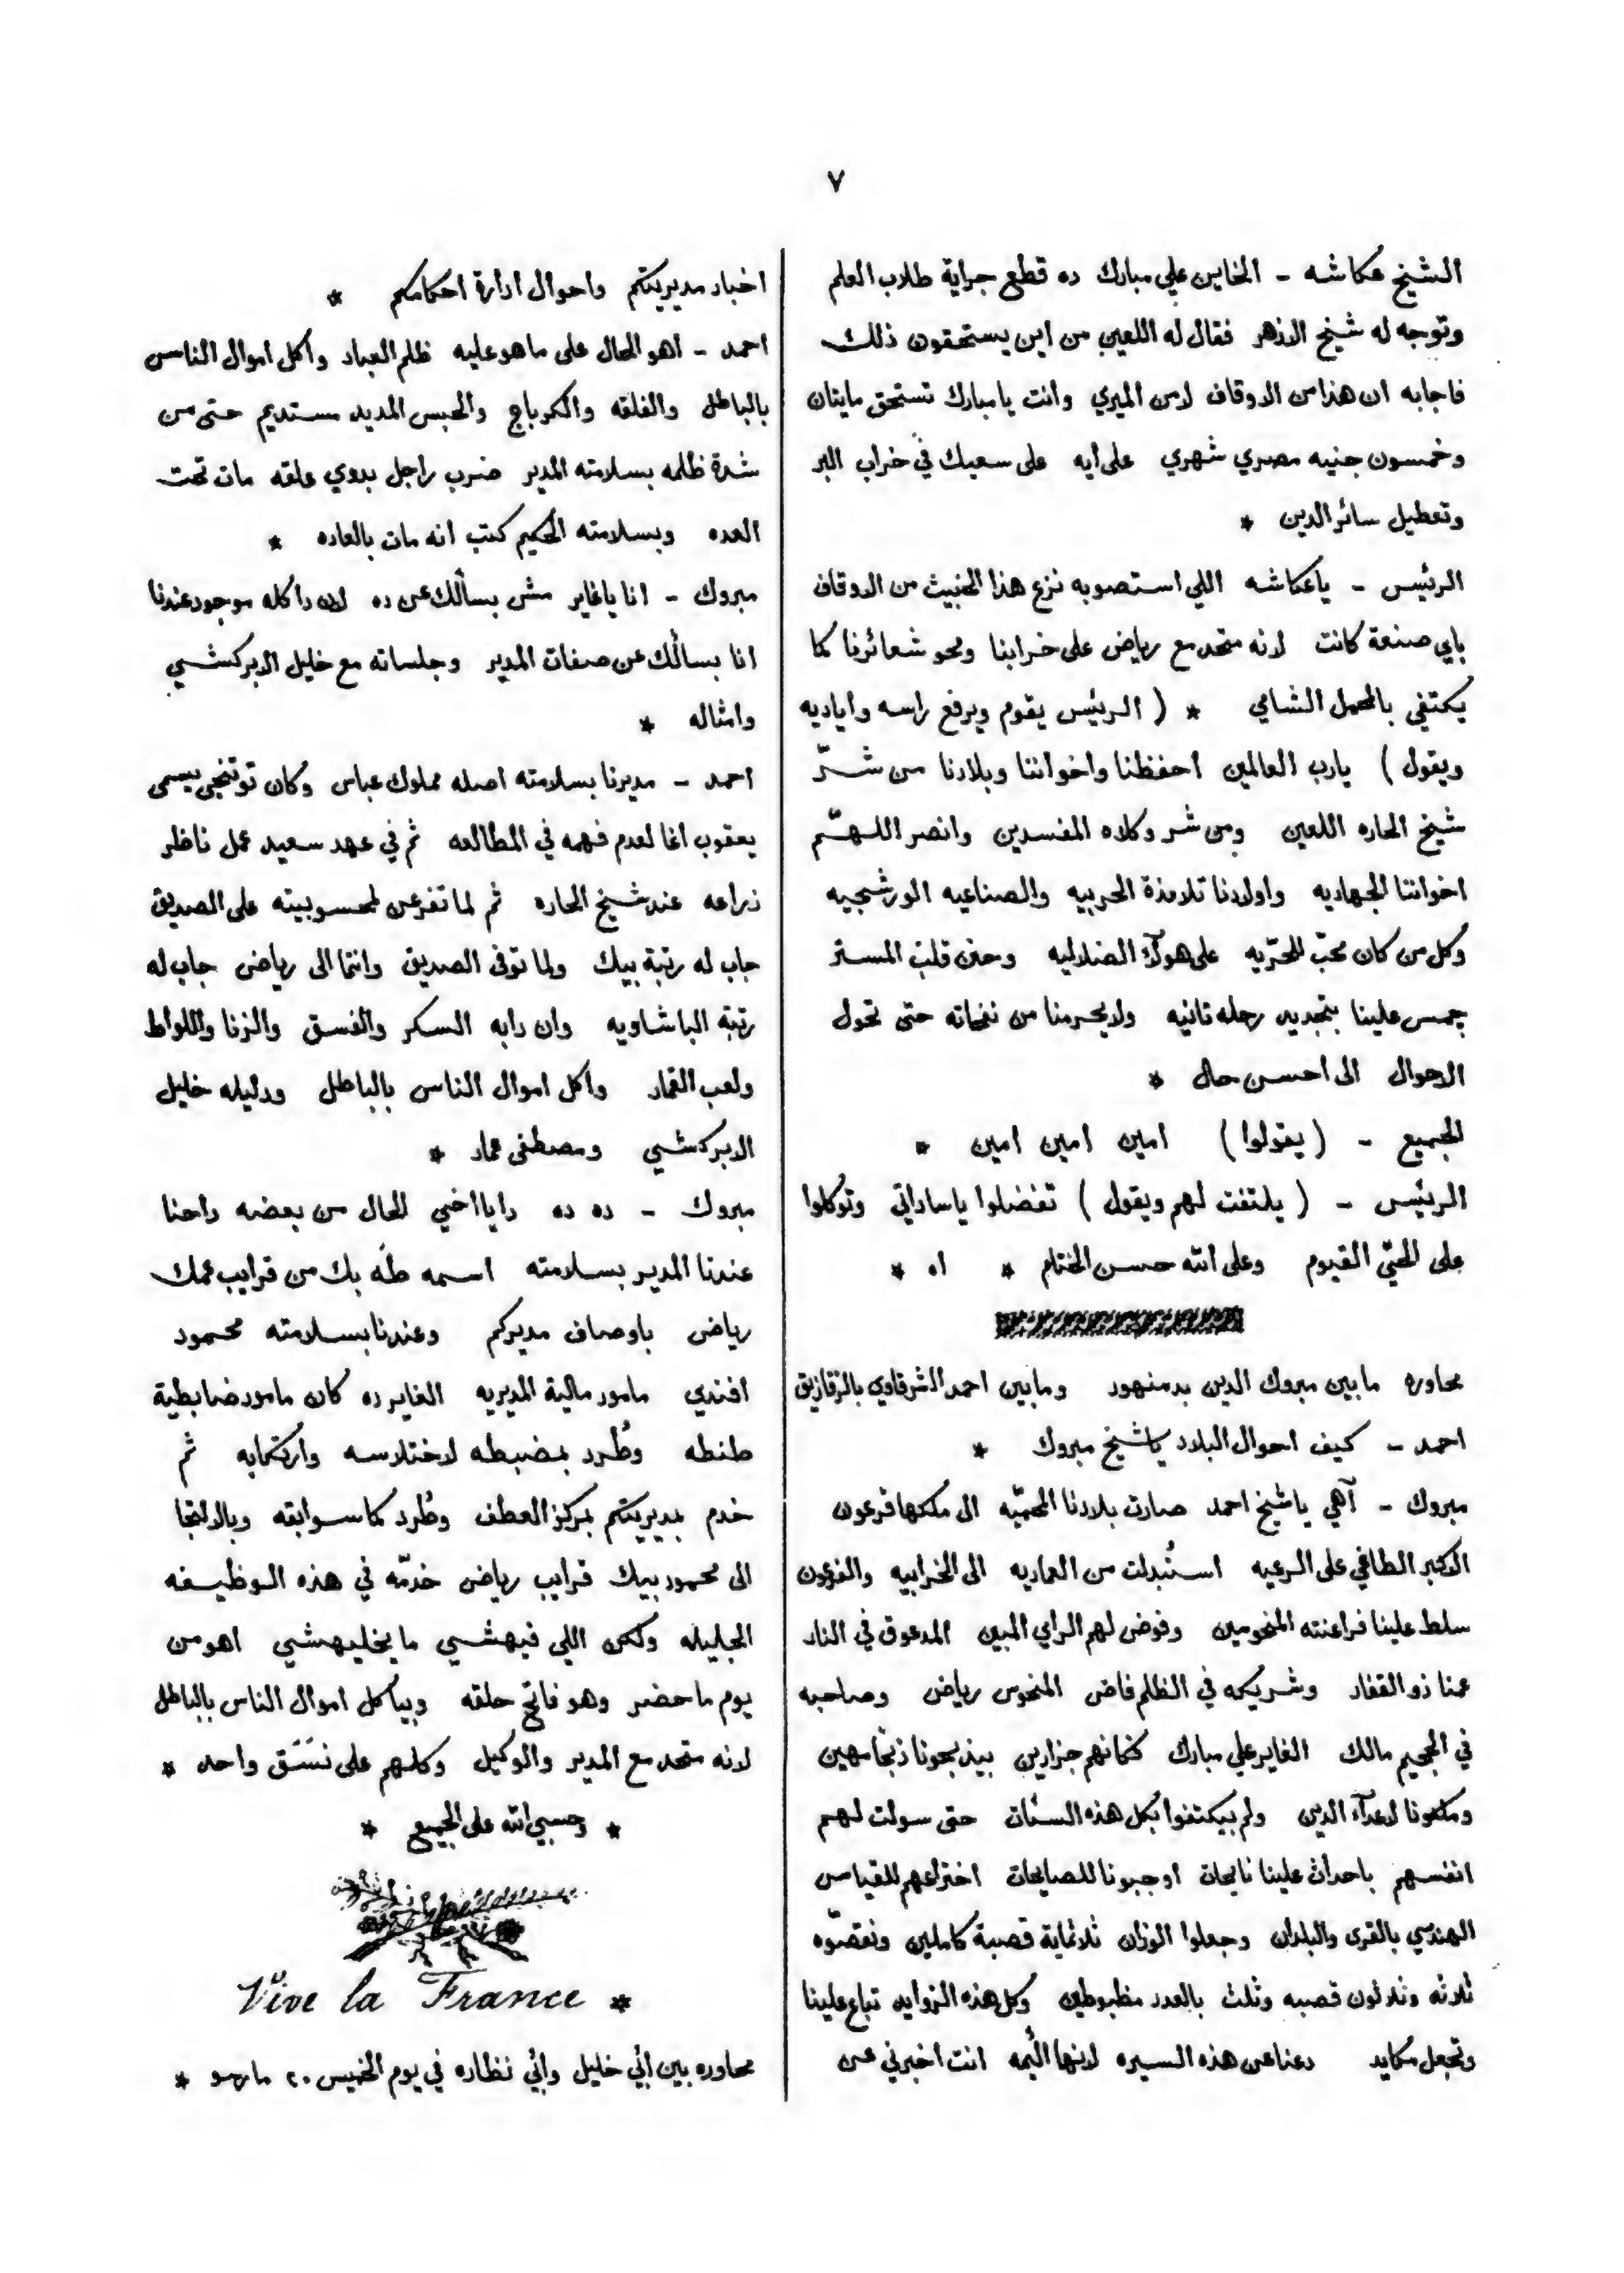 ٧
الشيخ عكاشه - الخاين علي مبارك ده قطع جراية طلاب العلم
وتوجه له شيخ الازهر فقال له اللعين من اين يستحقون ذلك
فاجابه ان هذا من الاوقاف لا من الميري وانت يا مبارك تستحق مايتان
وخمسون جنيه مصري شهري على ايه على سعيك في خراب البر
وتعطيل سائر الدين *
الرئيس - يا عكاشه اللي استصوبه نزع هذا الخبيث من الاوقاف
باي صنعة كانت لانه متحد مع رياض على خرابنا ومحو شعائرنا كما
يكتفي بالمحمل الشامي * ( الرئيس يقوم ويرفع راسه واياديه
ويقول ) يارب العالمين احفظنا واخواننا وبلادنا من شرّ
شيخ الحاره اللعين ومن شر وكلاه المفسدين وانصر اللهمّ
اخواننا الجهاديه واولادنا تلامذة الحربيه والصناعيه الورشجيه
وكل من كان محبّ للحرّيه على هولآء الضلاليه وحنن قلب المستر
جمس علينا بتجديد رحله تانيه ولا يحرمنا من نفحاته حتى تحول
الاحوال الى احسن حال *
الجميع - ( يقولوا ) امين امين امين *
الرئيس - ( يلتفت لهم ويقول ) تفضلوا يا ساداتي وتوكلوا
على الحيّ القيوم وعلى الله حسن الختام * اه *
محاوره ما بين مبروك الدين بدمنهور وما بين احمد الشرقاوي بالزقازيق
احمد - كيف احوال البلاد يا شيخ مبروك *
مبروك - آهي يا شيخ احمد صارت بلادنا المحميّه الى ملكها فرعون
الاكبر الطاغي على الرعيه استُبدلت من العماريه الى الخرابيه والفرعون
سلط علينا فراعنته المنحومين وفوض لهم الراي المبين المدعوق في النار
عمنا ذو الفقار وشريكه في الظلم فاض المنحوس رياض وصاحبه
في الجحيم مالك الغاير علي مبارك كمانهم جزارين بيذبحونا ذبحا مهين
وملكونا لاعدآء الدين ولم بيكتفوا بكل هذه السئات حتى سولت لهم
انفسهم باحداث علينا نايحات اوجبونا للصايحات اختراعهم للقياس
الهندسي بالقرى والبلدان وجعلوا الوزان ثلاثماية قصبة كاملين ونقصّوه
ثلاثه وثلاثون قصبه وثلث بالعدد مظبوطين وكل هذه الزوايد تباع علينا
وتجعل مكايد دعنا من هذه السيره لانها اليمه انت اخبرني عن
اخبار مديريتكم واحوال ادارة احكامكم *
احمد - اهو الحال على ما هو عليه ظلم العباد واكل اموال الناس
بالباطل والفلقه والكرباج والحبس المديد مستديم حتى من
شدة ظلمه بسلامته المدير ضرب راجل بدوي علقه مات تحت
العده وبسلامته الحكيم كتب انه مات بالعاده *
مبروك - انا يا غاير مش بسألك عن ده لان دا كله موجود عندنا
انا بسألك عن صفات المدير وجلساته مع خليل الدبركشي
وامثاله *
احمد - مديرنا بسلامته اصله مملوك عباس وكان توتنجي يسمى
يعقوب اغا لعدم فهمه في المطالعه ثم في عهد سعيد عمل ناظر
زراعه عند شيخ الحاره ثم لما تفرعن لمحسوبيته على الصديق
جاب له رتبة بيك ولما توفى الصديق وانتما الى رياض جاب له
رتبة الباشاويه وان دابه السكر والفسق والزنا واللواط
ولعب القمار واكل اموال الناس بالباطل ودليله خليل
الدبركشي ومصطفى عماد *
مبروك - ده ده دا يا اخي الحال من بعضه داحنا
عندنا المدير بسلامته اسمه طه بك من قرايب عمك
رياض باوصاف مديركم وعندنا بسلامته محمود
افندي مامور مالية المديريه الغاير ده كان مامور ضابطية
طنطه وطُرد بمضبطه لاختلاسه وارتكابه ثم
خدم بمديريتكم بمركز العطف وطُرد كما سوابقه وبالالتجا
الى محمود بيك قرايب رياض خدمّه في هذه الوظيفه
الجليله ولكن اللي فيهشي ما يخليهشي اهو من
يوم ما حضر وهو فاتح حلقه وبياكل اموال الناس بالباطل
لانه متحد مع المدير والوكيل وكلهم على نَسَق واحد *
* وحسبي الله على الجميع *
Vive la France *
محاوره بين أبي خليل وأبي نظاره في يوم الخميس ٢٠ مارسو *